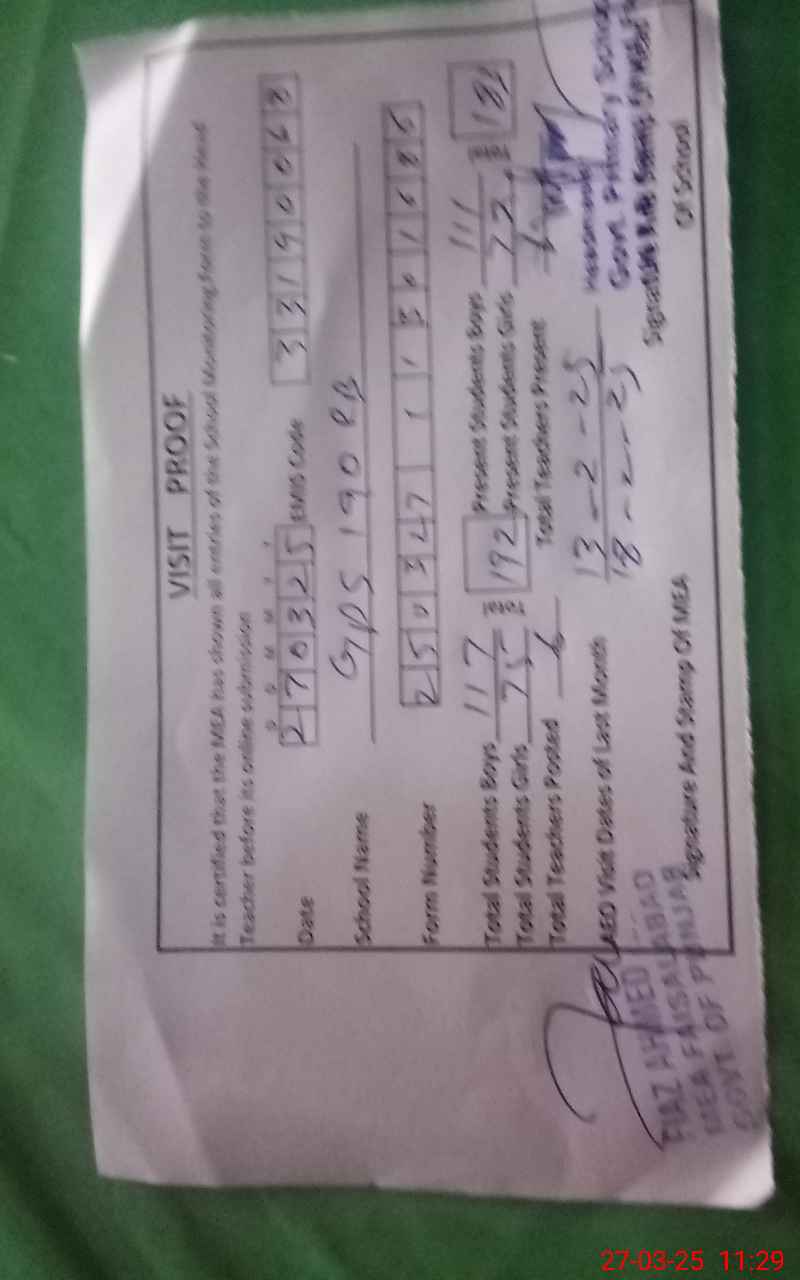 VISIT PROOF
It is certified that the MEA has shown all entries of the School Monitoring Form to the Head
Teacher before its online submission
D D M M Y Y
Date 270325 EMIS Code 33190068
School Name GPS 190 RB
Form Number
Total Students Boys 117 192 Present Students Boys 111
Total Students Girls 75 Present Students Girls 72
Total Teachers Posted 6 Total Teachers Present 6
AEO Visit Dates of Last Month 13-2-25
18-2-25
Govt. Primary School
Signature And Stamp Of MEA Signature
Of School
FIAZ AHMED
MEA FAISALABAD
GOVT OF PUNJAB
27-03-25 11:29